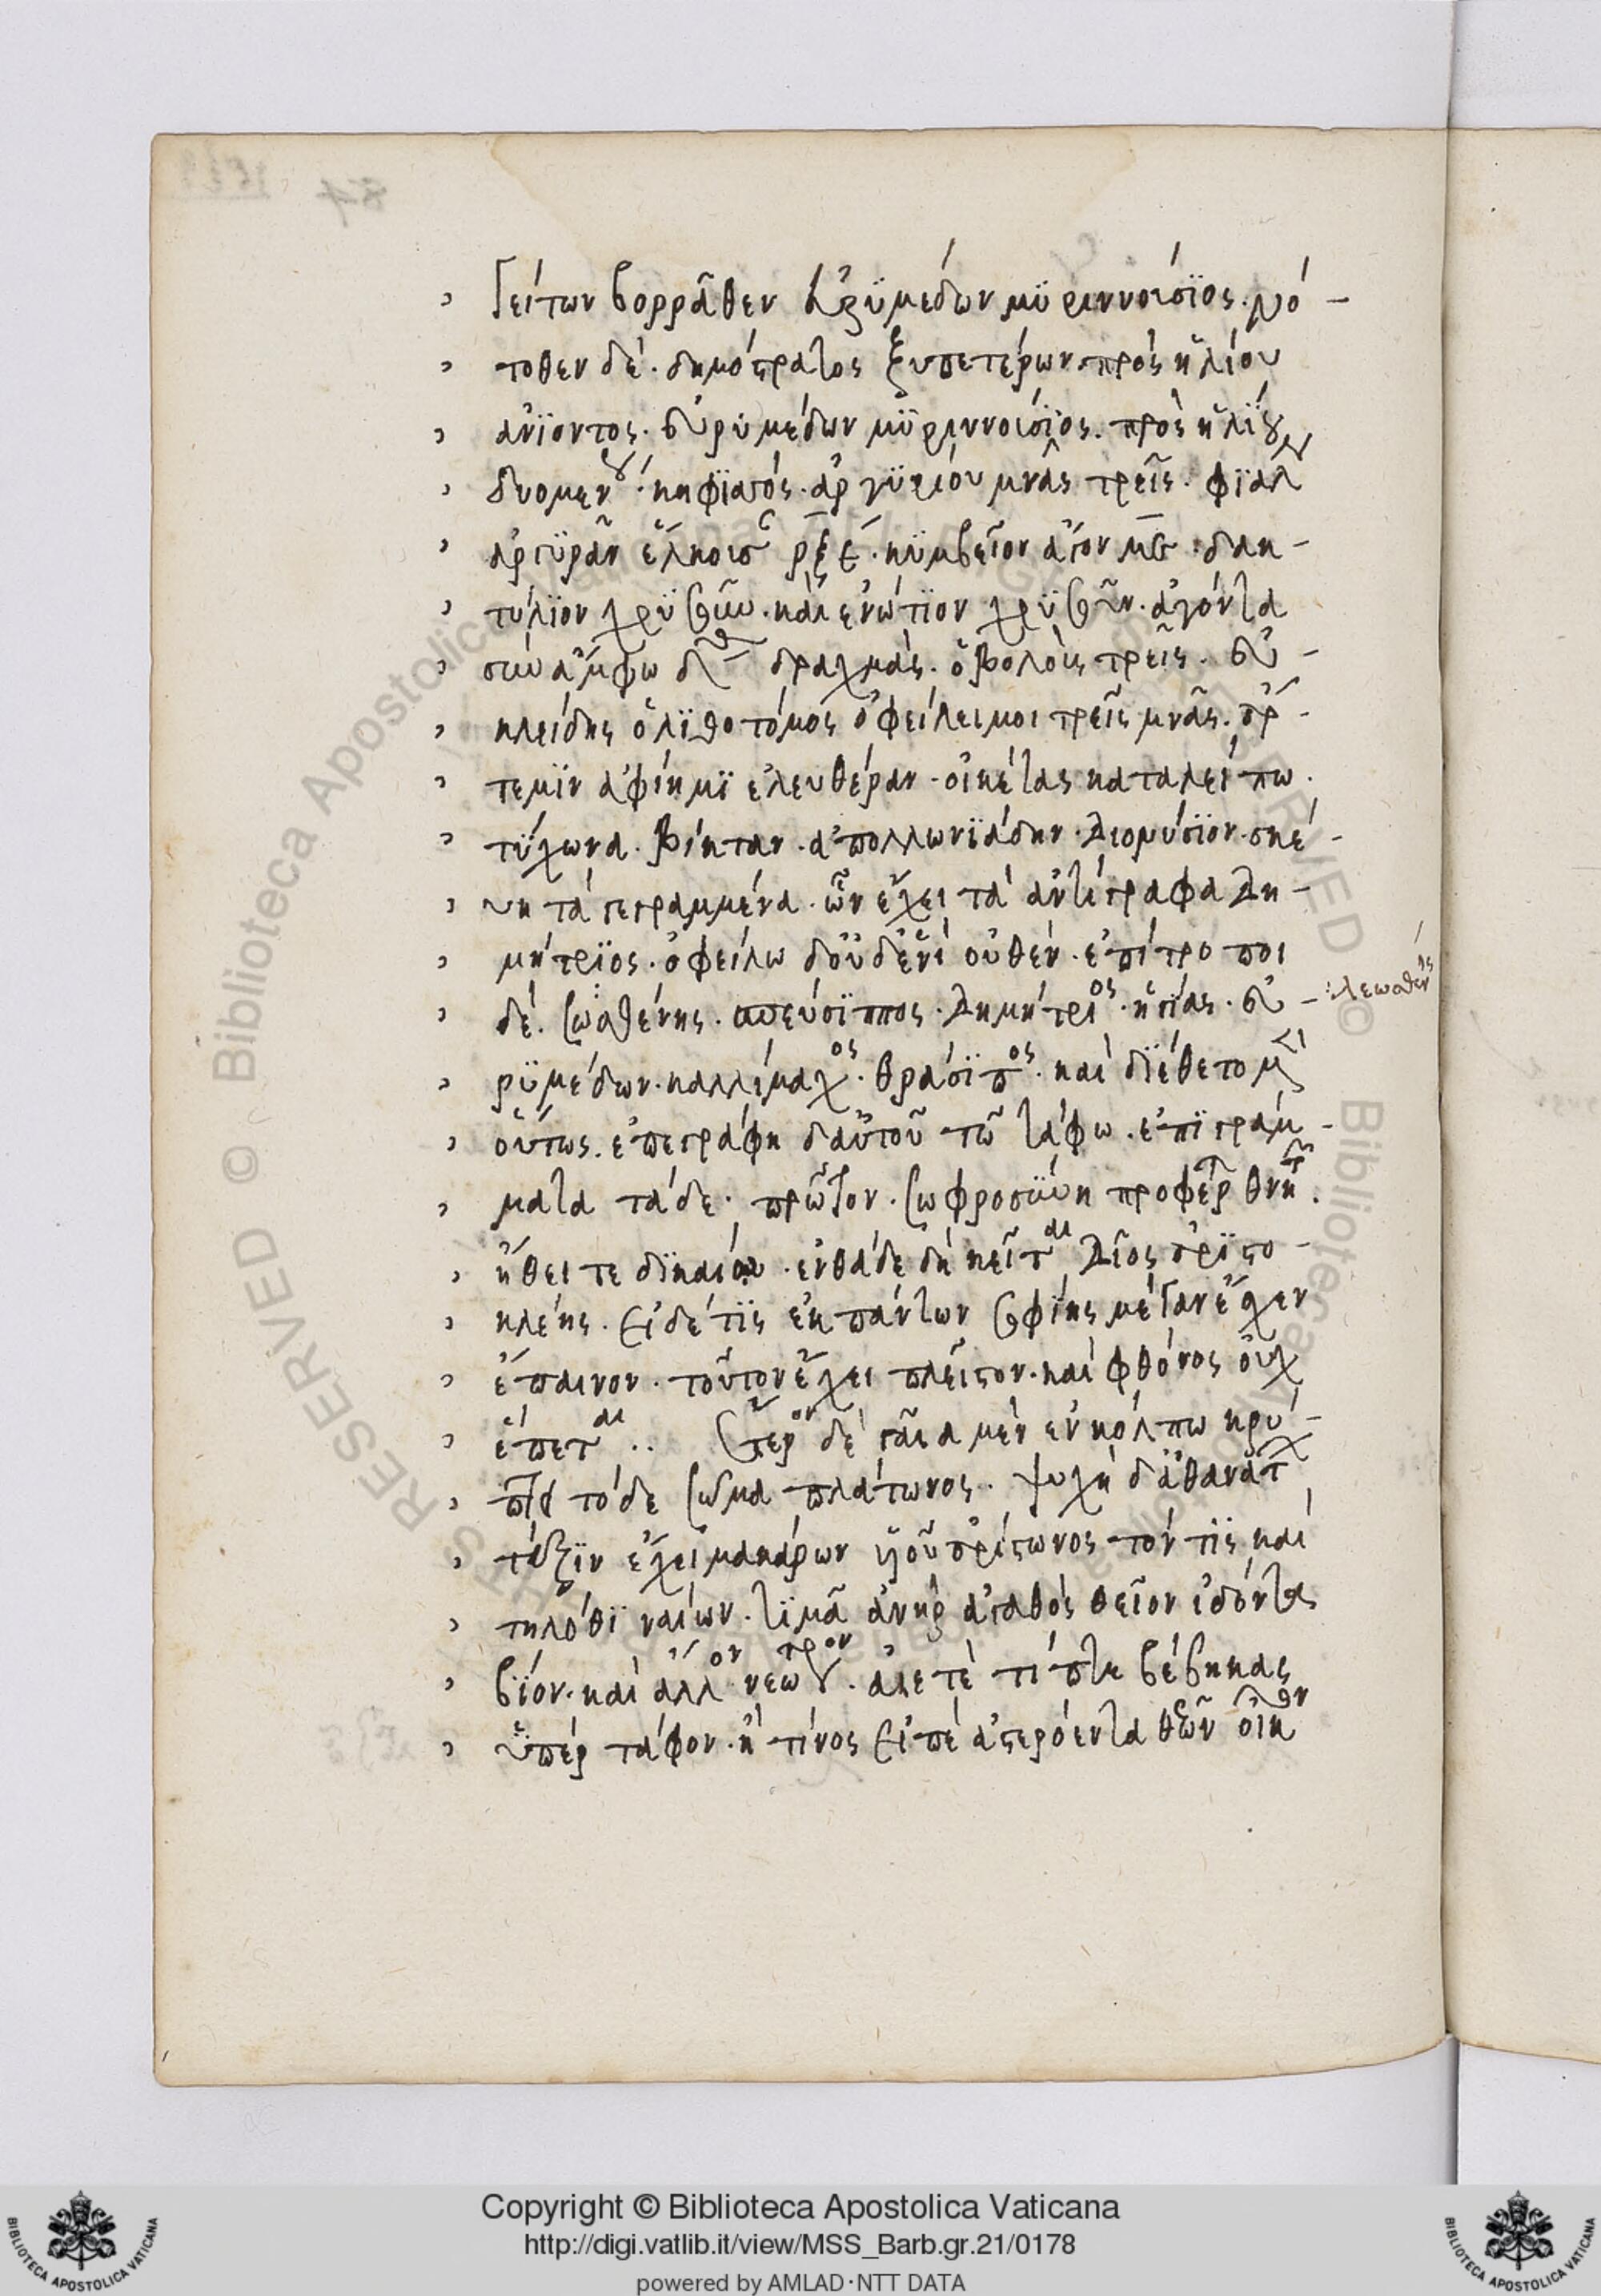 γείτων βορρᾶθεν εὐρϋμέδων μϋριννούσϊος. νό-
τοθεν δὲ. δημόστρατος ξυπετέρων. πρὸς ἡλίου
ἀνϊόντος. εὐρυμέδων μϋριννούσϊος. πρὸς ἡλίου
δυομένου. κηφϊσός. ἀργϋρίου μνᾶς τρεῖς. φϊάλην
ἀργϋρᾶν ἕλκουσαν ρξε. κϋμβεῖον ἄγον με. δακ-
τύλϊον χρϋσοῦν. καὶ ἐνώτϊον χρϋσοῦν. ἄγοντα
συνάμφω δραχμὰς. ὀβολοὺς τρεῖς. εὐ-
κλείδης ὁ λϊθοτόμος ὀφείλει μοι τρεῖς μνᾶς. ἄρ-
τεμϊν ἀφίημϊ ἐλευθέραν. οἰκέτας καταλείπω.
τύχωνα. βίκταν. ἀπολλωνϊάδην. Διονύσϊον. σκέ-
υη τὰ γεγραμμένα. ὧν ἔχει τὰ ἀντίγραφα Δη-
μήτρϊος. ὀφείλω δ' οὐδενὶ οὐθέν. ἐπίτροποι
δὲ. σωσθένης. σπεύσϊππος. Δημήτριος. ἡγίας. εὐ- λεωσθένης
ρϋμέδων. καλλίμαχος. θράσϊππος. καὶ δϊέθετο μὲν
οὕτως. ἐπεγράφη δ' αὐτοῦ τῶ τάφω. ἐπϊγράμ-
ματα τάδε. πρῶτον. σωφροσϋνη προφέρ θνητ.
ἤθει τε δϊκαίω. ἐνθάδε δὴ κεῖται Δῖος ἀρϊστο-
κλέης. εἰ δέ τϊς ἐκ πάντων σοφϊης μέγαν ἔσχεν
ἔπαινον. τοῦτον ἔχει πλεῖστον. καὶ φθόνος οὐχ
ἕπεται.. ἕτερον δὲ γαῖα μὲν ἐν κόλπω κρύ-
πτει τόδε σῶμα πλάτωνος. ψυχὴ δ' ἀθανάτ
τάξϊν ἔχει μακάρων ὑοῦ ἀρίστωνος τόν τϊς καὶ
τηλόθϊ ναίων. τϊμᾶ ἀνὴρ ἀγαθὸς θεῖον ἰδόντα
βϊον. καὶ ἄλλον νεώτερον. αἰετὲ τίπτε βέβηκας
ὑπὲρ τάφον. ἢ τίνος εἰπὲ ἀστερόεντα θεῶν οἶκον
Copyright © Biblioteca Apostolica Vaticana
http://digi.vatlib.it/view/MSS_Barb.gr.21/0178
powered by AMLAD·NTT DATA